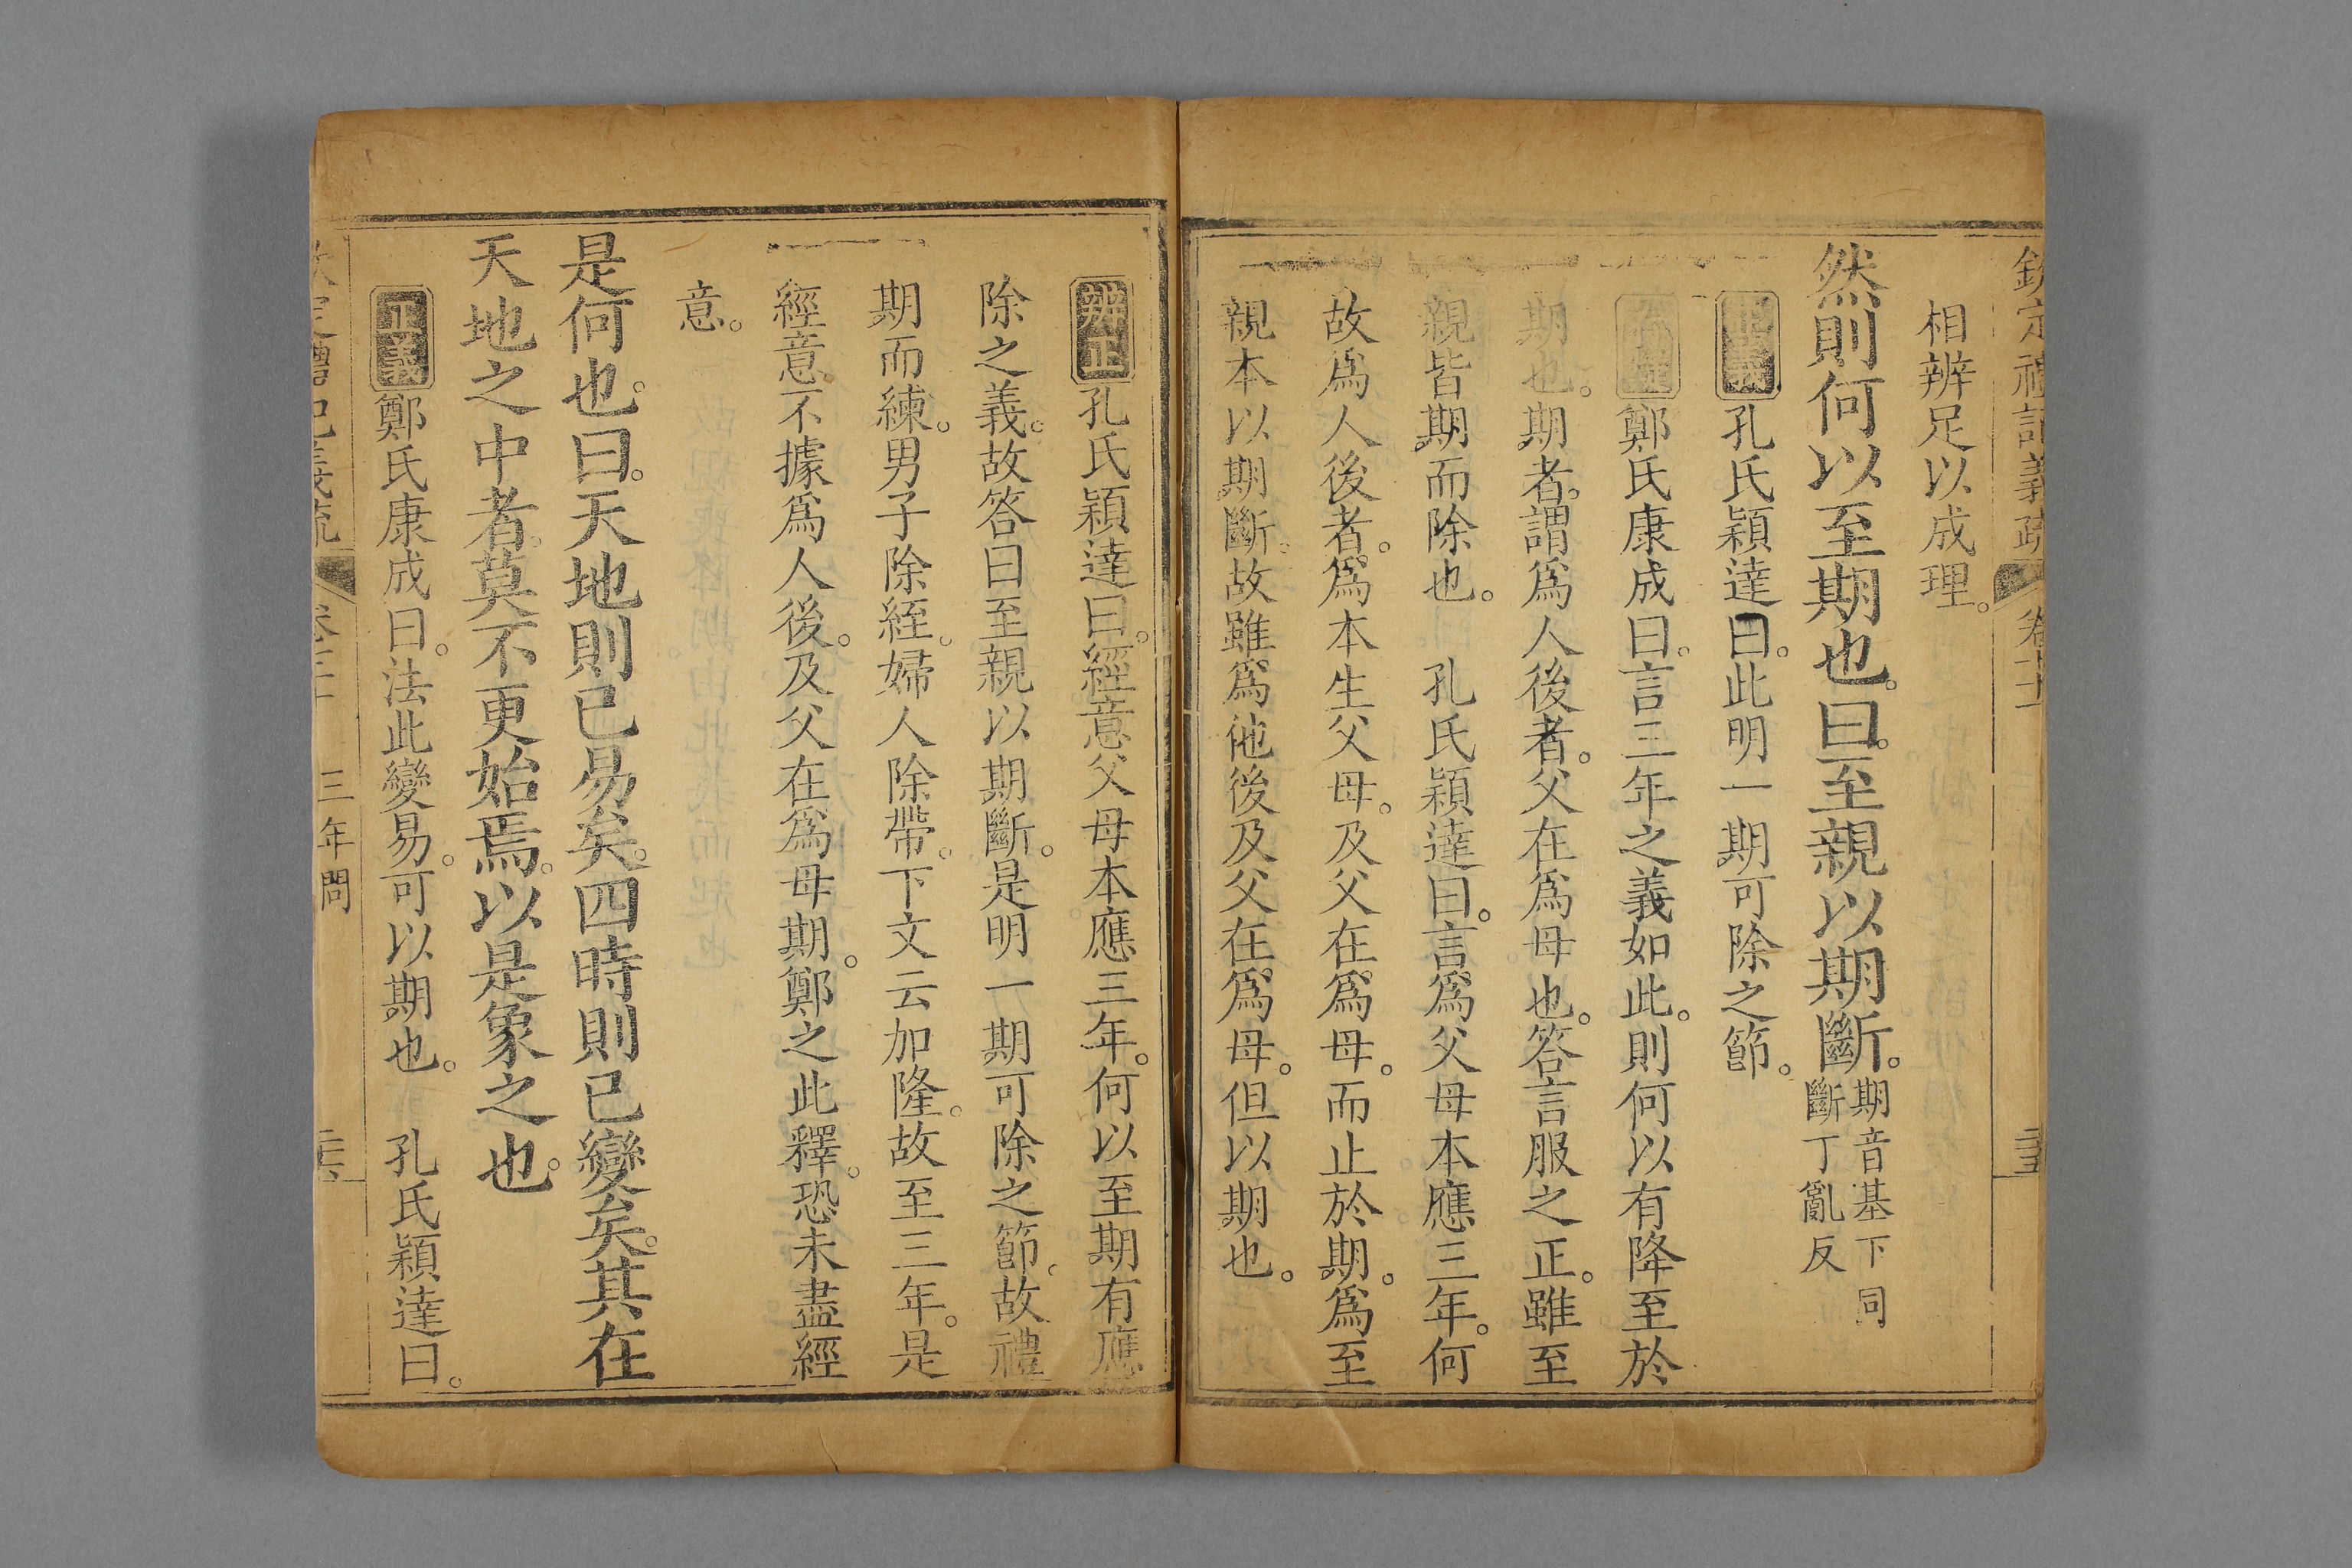 欽定禮記義疏 卷七十二 三五
相辨足以成理。
然則何以至期也。曰。至親以期斷。期音基下同
斷丁亂反
正義孔氏穎達曰。此明一期可除之節。
存疑鄭氏康成曰。言三年之義如此。則何以有降至於
期也。期者。謂爲人後者。父在爲母也。答言服之正。雖至
親皆期而除也。 孔氏穎達曰。言爲父母本應三年。何
故爲人後者。爲本生父母。及父在爲母。而止於期。爲至
親本以期斷。故雖爲他後及父在爲母。但以期也。
辨正孔氏穎達曰。經意父母本應三年。何以至期有應
除之義。故答曰至親以期斷。是明一期可除之節。故禮
期而練。男子除絰。婦人除帶。下文云加隆。故至三年。是
經意。不據爲人後。及父在爲母期。鄭之此釋。恐未盡經
意。
是何也。曰。天地則已易矣。四時則已變矣。其在
天地之中者。莫不更始焉。以是象之也。
正義鄭氏康成曰。法此變易。可以期也。 孔氏穎達曰。
三年問